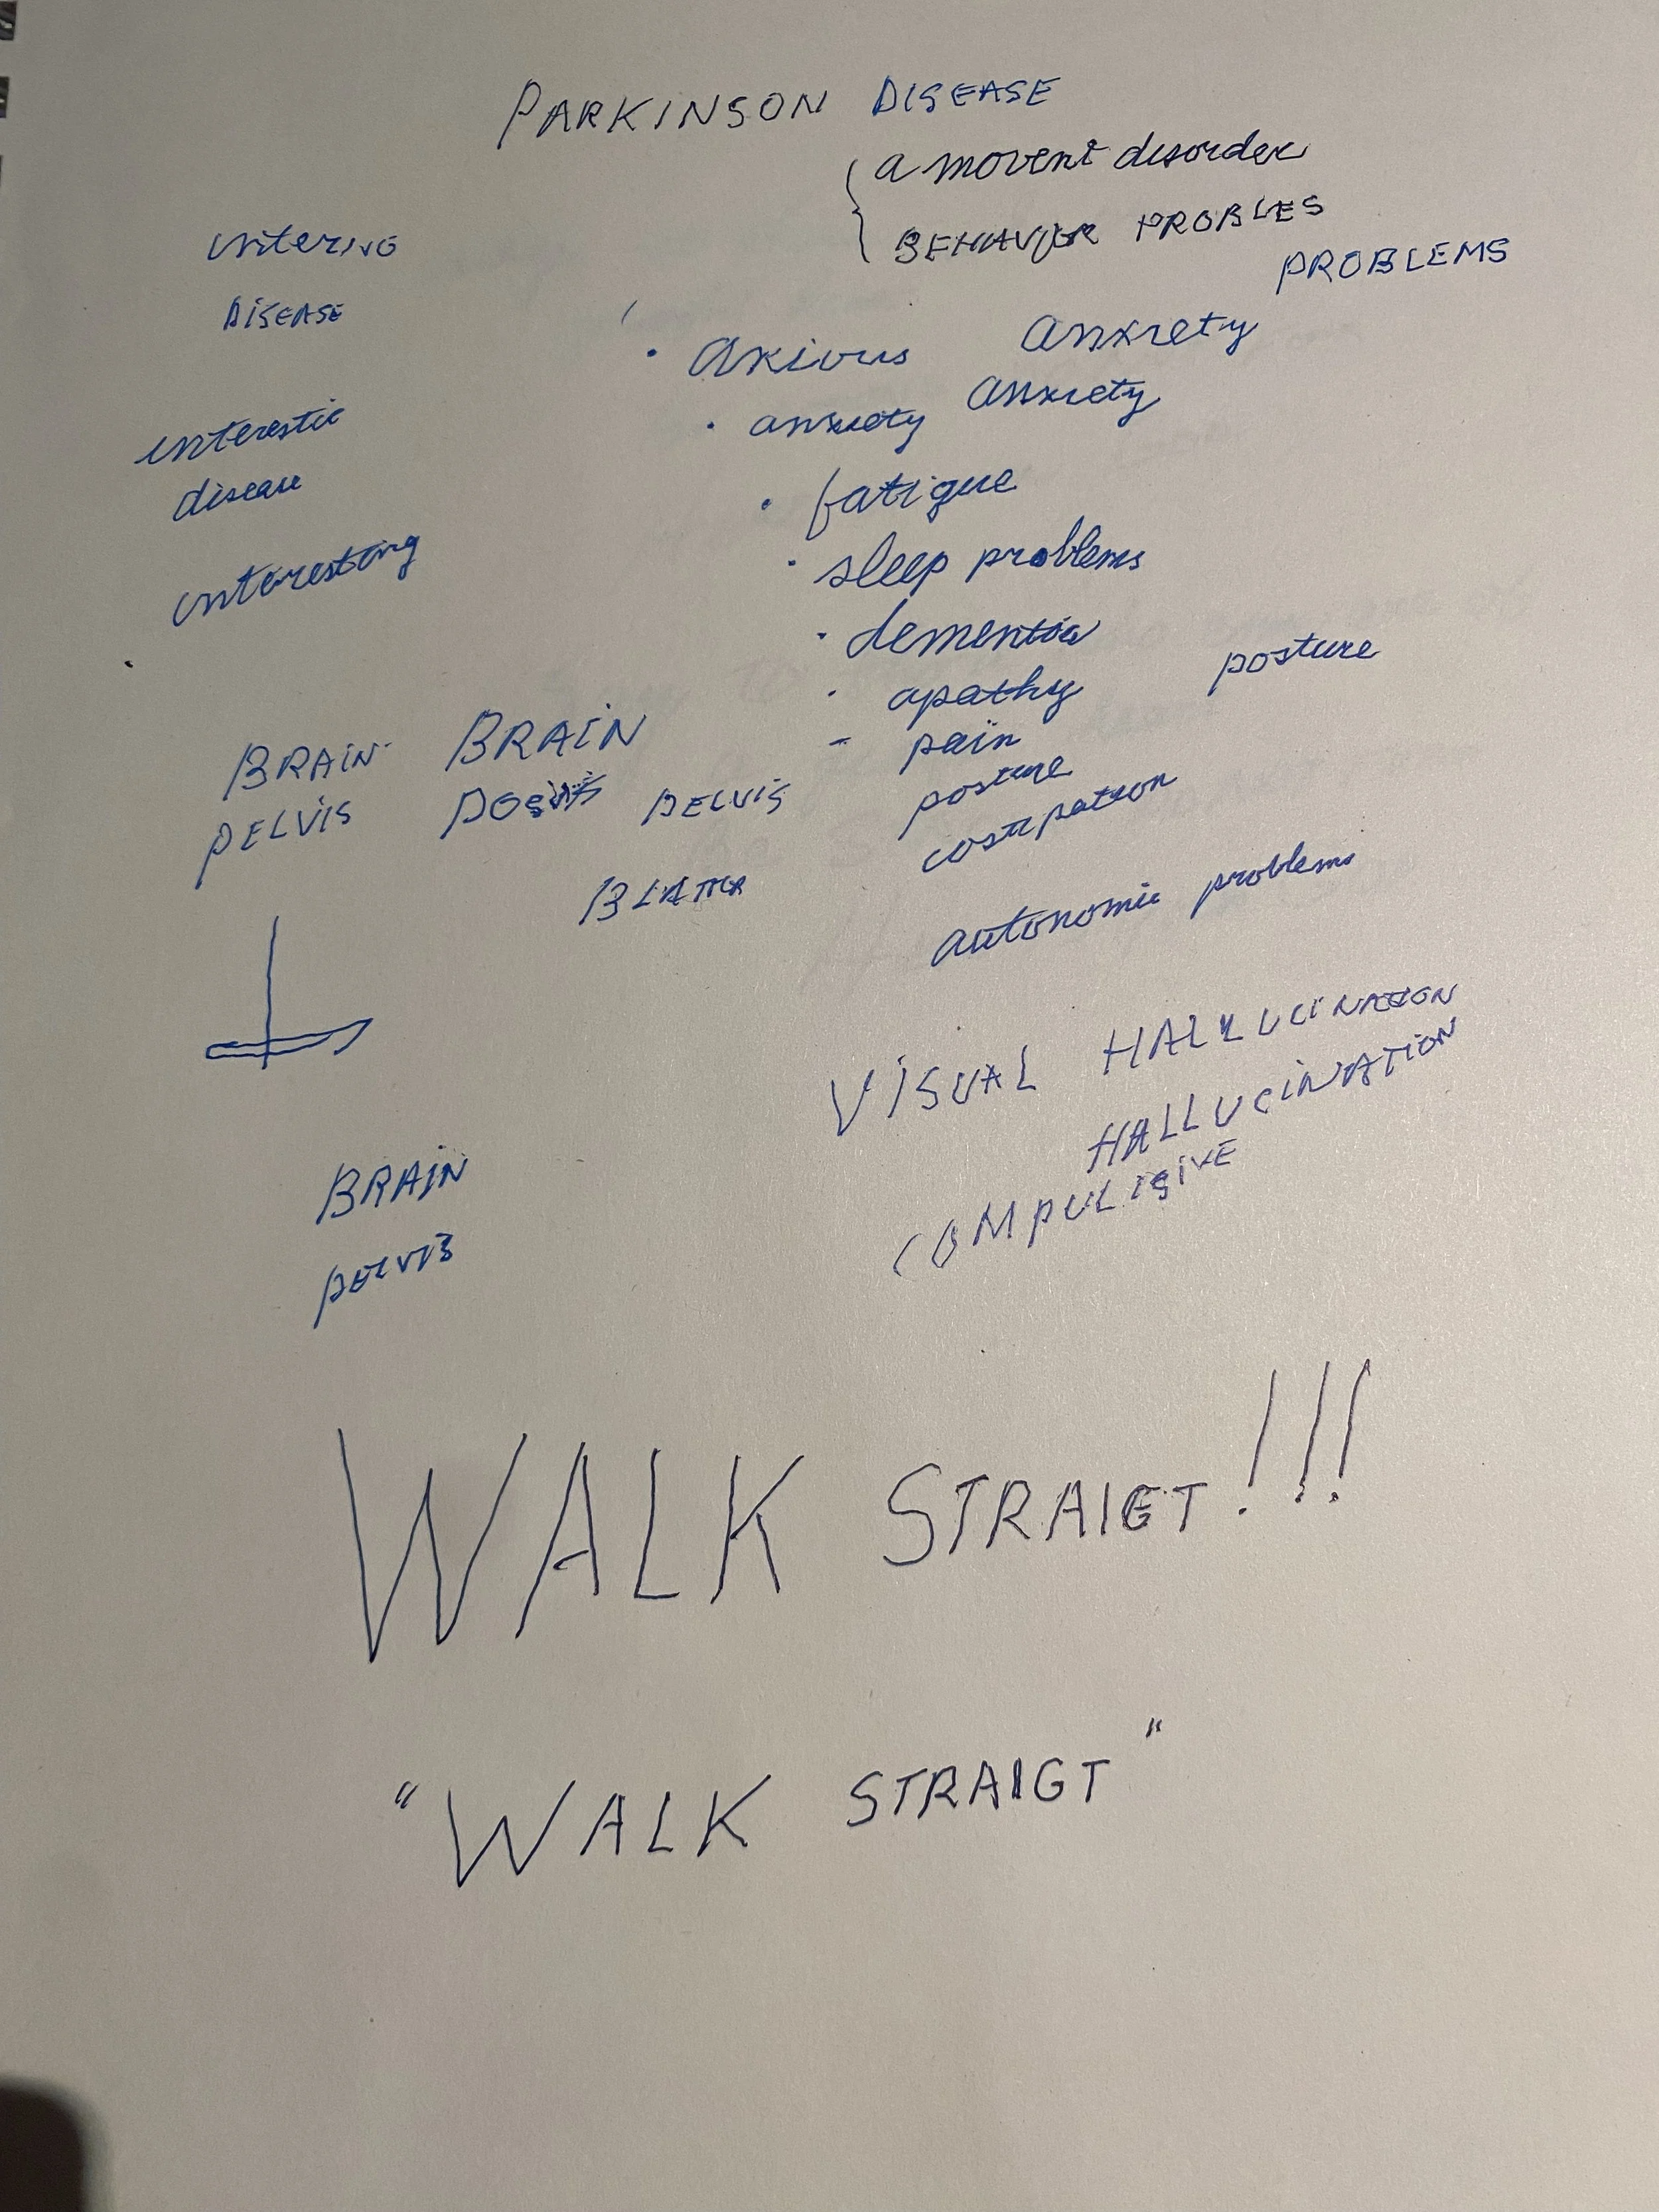 PARKINSON DISEASE
a movent disorder
BEHAVIOR PROBLES
PROBLEMS
DISEASE
• Axious Anxiety
• anxiety Anxiety
interestic
disease
• fatigue
interesting
• sleep problems
• dementia
posture
• apathy
- pain
BRAIN BRAIN
posture
PELVIS PELVIS
costipation
autonomic problems
VISUAL HALLUCINATION
HALLUCINATION
COMPULISIVE
BRAIN
PELVIS
WALK STRAIGT!!!
"WALK STRAIGT"